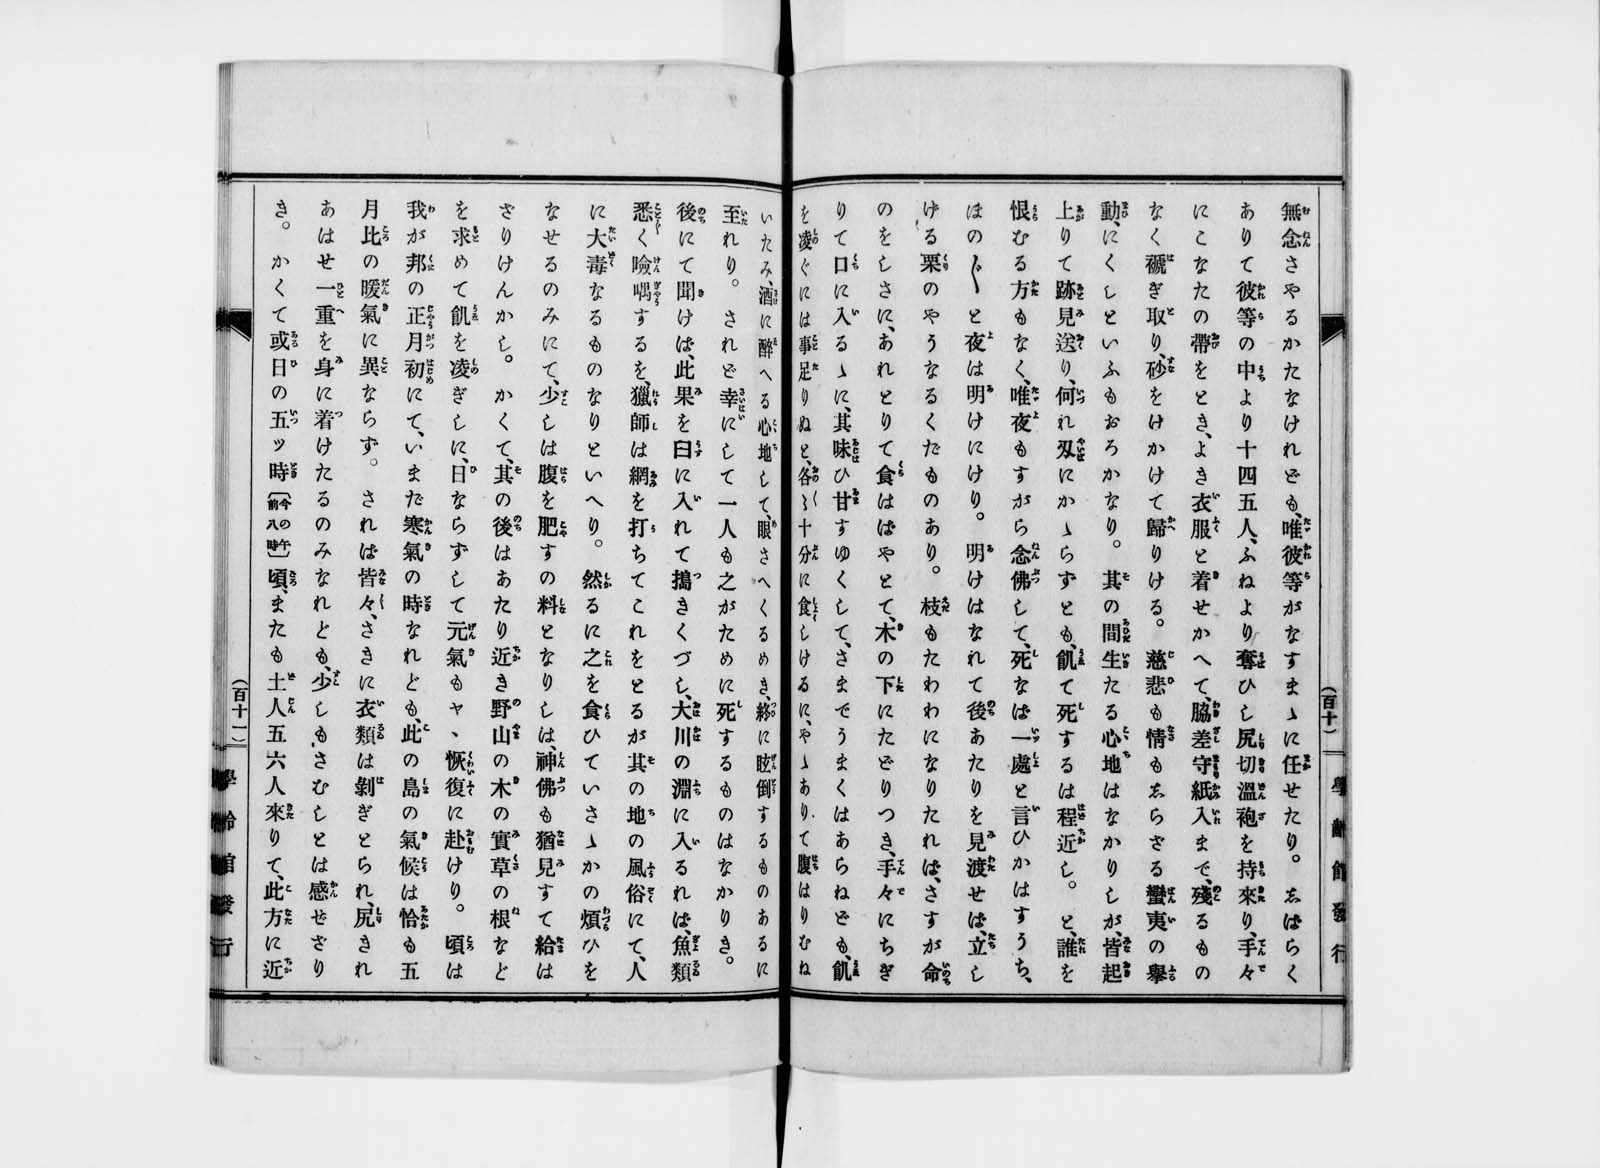 無念さやるかたなけれども、唯彼等がなすまゝに任せたり。しばらく
ありて彼等の中より十四五人、ふねより奪ひし尻切溫袍を持來り、手々
にこなたの帶をとき、よき衣服と着せかへて、脇差守紙入まで、殘るもの
なく褫ぎ取り、砂をけかけて歸りける。慈悲も情もしらざる蠻夷の擧
動、にくしといふもおろかなり。其の間生たる心地はなかりしが、皆起
上りて跡見送り、何れ刄にかゝらずとも、飢て死するは程近し。と、誰を
恨むる方もなく、唯夜もすがら念佛して、死なば一處と言ひかはすうち、
ほの〴〵と夜は明けにけり。明けはなれて後あたりを見渡せば、立し
げる栗のやうなるくだものあり。枝もたわわになりたれば、さすが命
のをしさに、あれとりて食はばやとて、木の下にたどりつき、手々にちぎ
りて口に入るゝに、其味ひ甘すゆくして、さまでうまくはあらねども、飢
を凌ぐには事足りぬと、各〻十分に食しけるに、やゝありて腹はりむね
いたみ、酒に醉へる心地して、眼さへくるめき、終に眩倒するものあるに
至れり。されど幸にして一人も之がために死するものはなかりき。
後にて聞けば、此果を臼に入れて搗きくづし、大川の淵に入るれば、魚類
悉く噞喁するを、獵師は網を打ちてこれをとるが其の地の風俗にて、人
に大毒なるものなりといへり。然るに之を食ひていさゝかの煩ひを
なせるのみにて、少しは腹を肥すの料となりしは、神佛も猶見すて給は
ざりけんかし。かくて、其の後はあたり近き野山の木の實草の根など
を求めて飢を凌ぎしに、日ならずして元氣もヤヽ恢復に赴けり。頃は
我が邦の正月初にて、いまだ寒氣の時なれども、此の島の氣候は恰も五
月比の暖氣に異ならず。されば皆々、さきに衣類は剝ぎとられ、尻きれ
あはせ一重を身に着けたるのみなれども、少しもさむしとは感ぜざり
き。かくて或日の五ッ時〔今の午前八時〕頃、またも土人五六人來りて、此方に近
(百十)
學齡館發行
(百十一)
學齡館發行